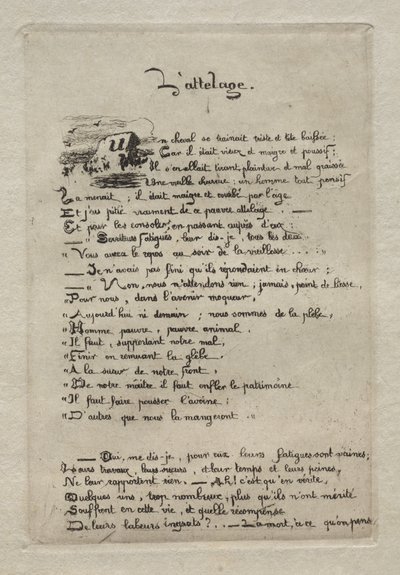 L'attelage.
Un cheval se trainait triste et tête baissée ;
Car il était vieux et maigre et poussif ;
Il s'en allait tirant, plaintive et mal graissée
Une vieille charrue ; un homme tout pensif
La menait ; il était maigre et courbé par l'âge
Et j'eus pitié vraiment de ce pauvre attelage . —
Et pour les consoler, en passant auprès d'eux :
— „ Serviteurs fatigués, leur dis-je, tous les deux
„ Vous aurez le repos au soir de la vieillesse . . . . „
— Je n'avais pas fini qu'ils répondaient en chœur ;
— „ Non, nous n'attendons rien, jamais, point de liesse,
„ Pour nous, dans l'avenir moqueur,
„ Aujourd'hui ni demain ; nous sommes de la plèbe,
„ Homme pauvre, pauvre animal.
„ Il faut, supportant notre mal,
„ Finir en remuant la glèbe.
„ A la sueur de notre front,
„ De notre maître il faut enfler le patrimoine
„ Il faut faire pousser l'avoine ;
„ D'autres que nous la mangeront . „
— Oui, me dis-je, pour eux leurs fatigues sont vaines ;
Leurs travaux, leurs sueurs, et leur temps et leurs peines,
Ne leur rapportent rien. — Ah ! c'est qu'en vérité,
Quelques uns, trop nombreux, plus qu'ils n'ont mérité
Souffrent en cette vie, et quelle récompense
De leurs labeurs ingrats ? . . — La mort, à ce qu'on pense